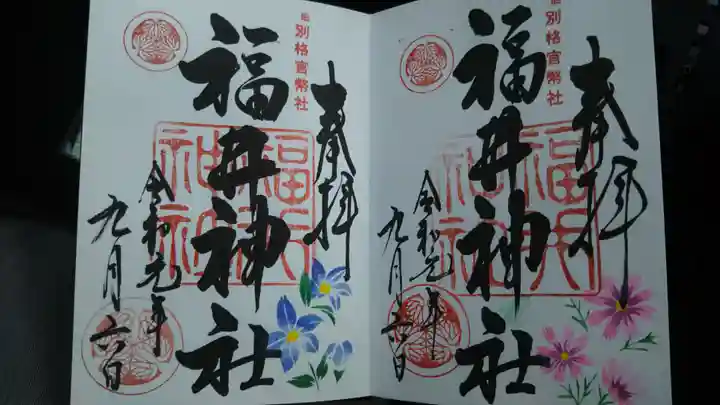 奉拝
旧別格官幣社
福井神社
令和元年
九月六日
奉拝
旧別格官幣社
福井神社
令和元年
九月六日